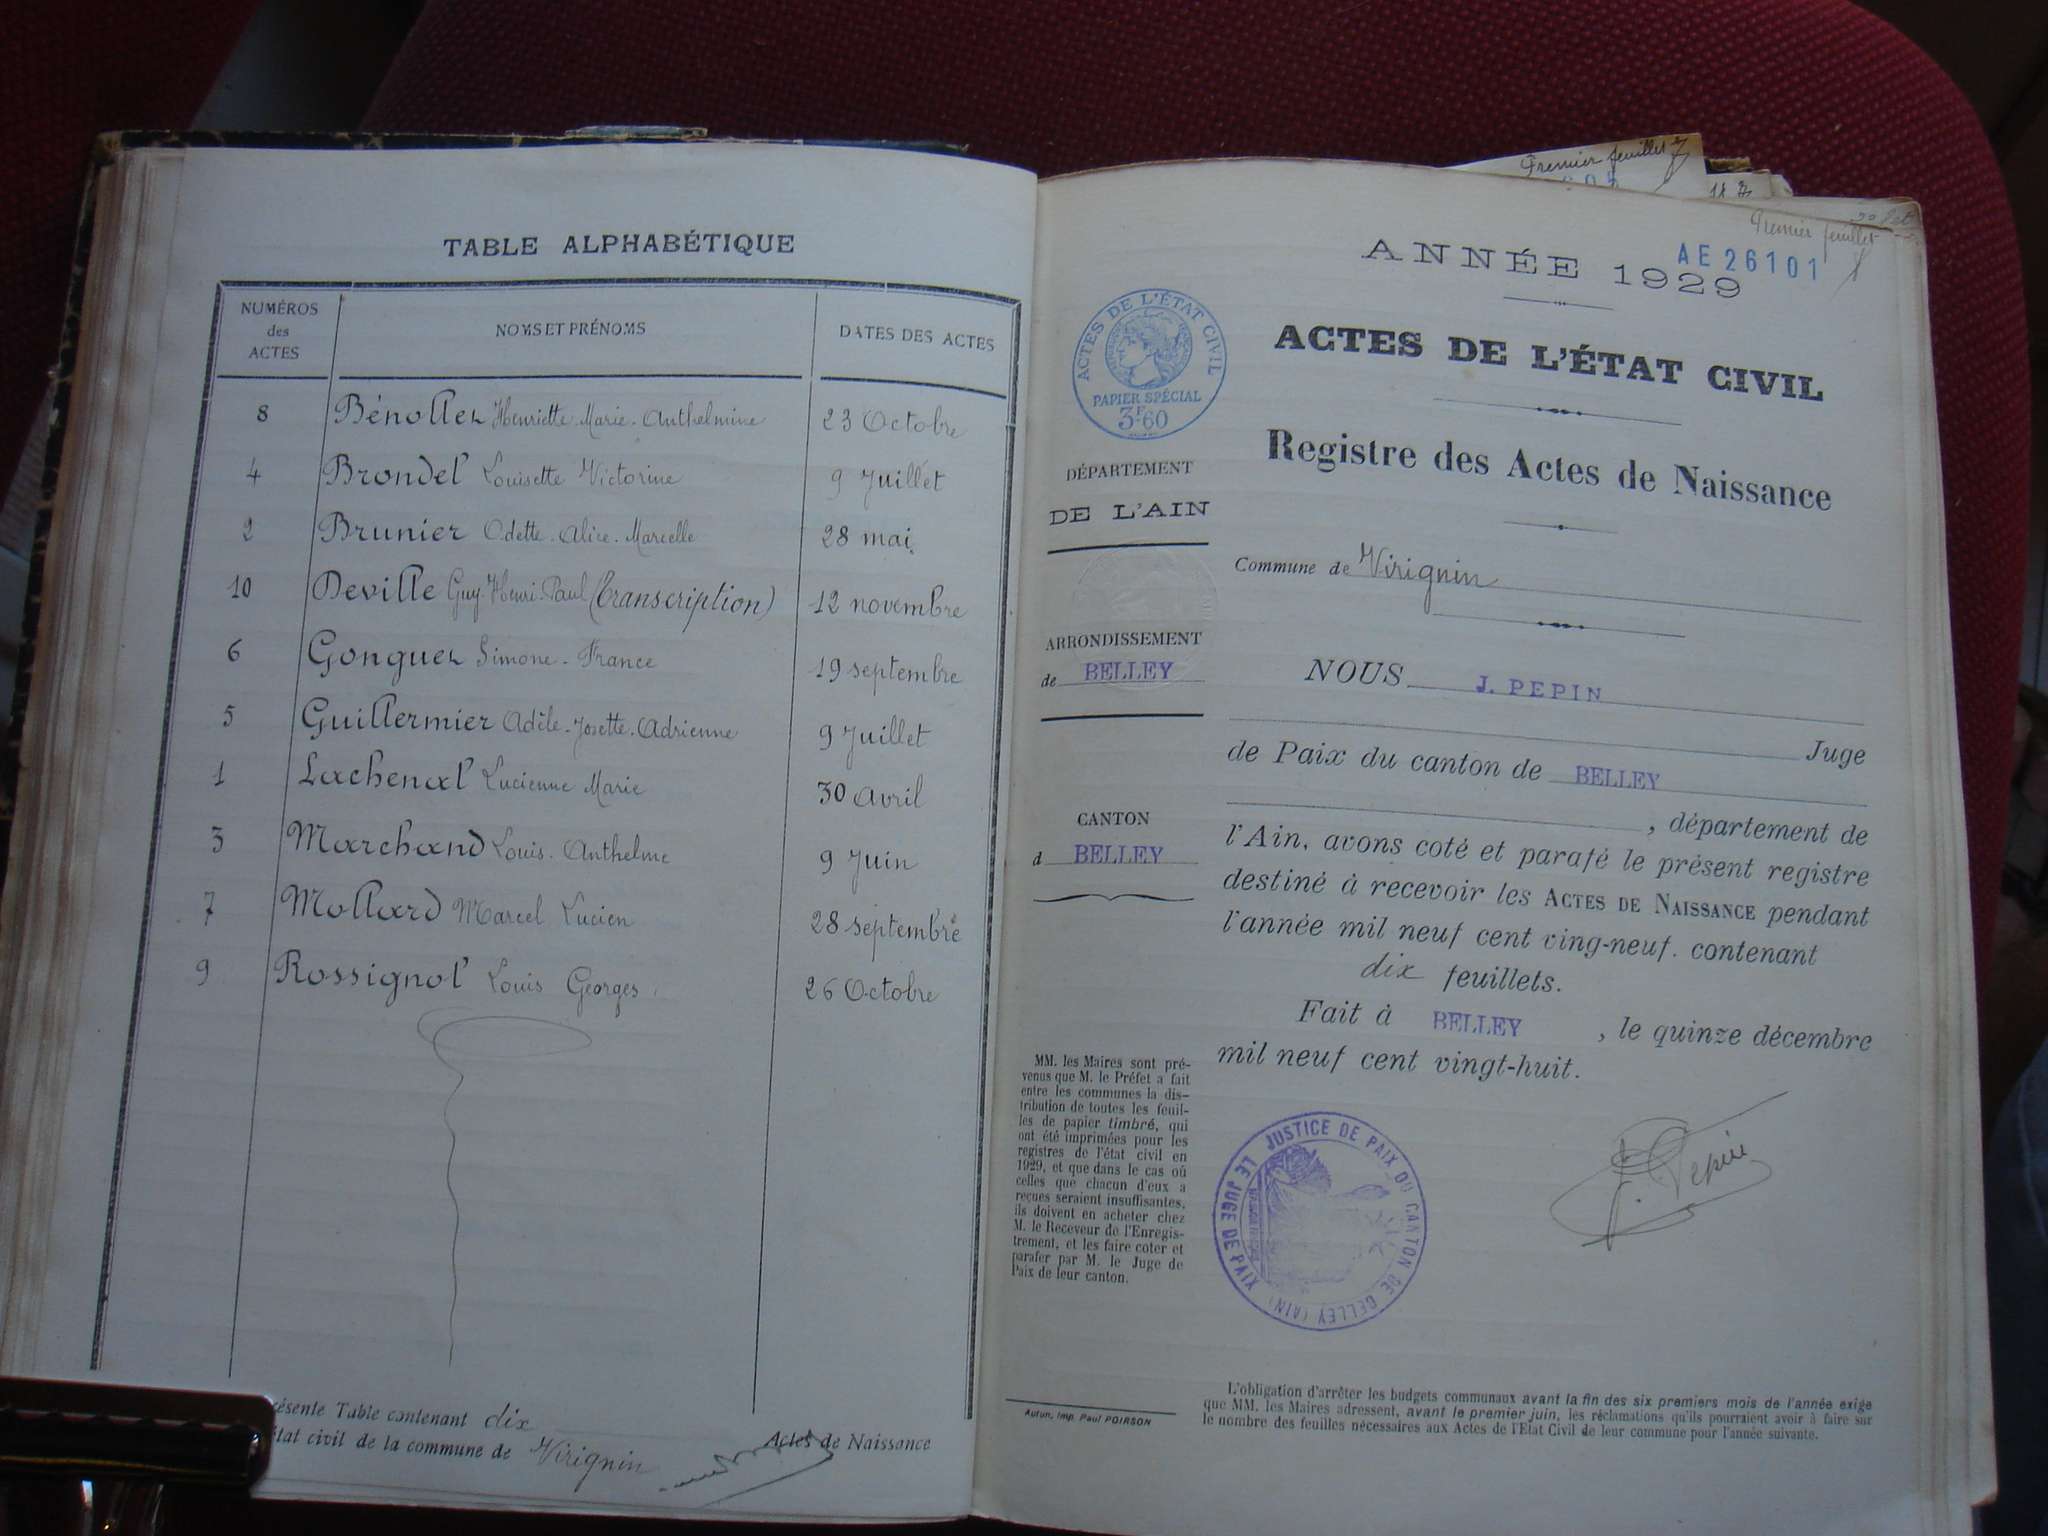 TABLE ALPHABÉTIQUE
NUMÉROS
des
ACTES
NOMS ET PRÉNOMS
DATES DES ACTES
8 Bénollez Henriette-Marie-Anthelmine 23 Octobre
4 Brondel Louisette Victorine 9 Juillet
2 Brunier Odette-Alice-Marcelle 28 mai
10 Deville Guy-Henri-Paul (Transcription) 12 novembre
6 Gonguez Simone-France 19 septembre
5 Guillermier Adèle-Josette-Adrienne 9 Juillet
1 Lachenal Lucienne Marie 30 avril
3 Marchand Louis-Anthelme 9 Juin
7 Mollard Marcel Lucien 28 septembre
9 Rossignol Louis Georges 26 Octobre
ésente Table contenant dix
Actes de Naissance
tat civil de la commune de Virignin
Premier feuillet
Premier feuillet
AE26101
ANNÉE 1929
ACTES DE L'ÉTAT CIVIL
PAPIER SPÉCIAL
3F60
ACTES DE L'ÉTAT CIVIL
Registre des Actes de Naissance
DÉPARTEMENT
DE L'AIN
Commune de Virignin
ARRONDISSEMENT
de BELLEY
CANTON
d BELLEY
NOUS J. PEPIN
Juge
de Paix du canton de BELLEY
, département de
l'Ain, avons coté et parafé le présent registre
destiné à recevoir les ACTES DE NAISSANCE pendant
l'année mil neuf cent ving-neuf. contenant
dix feuillets.
Fait à BELLEY , le quinze décembre
mil neuf cent vingt-huit.
MM. les Maires sont pré-
venus que M. le Préfet a fait
entre les communes la dis-
tribution de toutes les feuil-
les de papier timbré, qui
ont été imprimées pour les
registres de l'état civil en
1929, et que dans le cas où
celles que chacun d'eux a
reçues seraient insuffisantes,
ils doivent en acheter chez
M. le Receveur de l'Enregis-
trement, et les faire coter et
parafer par M. le Juge de
Paix de leur canton.
JUSTICE DE PAIX DU CANTON DE BELLEY (AIN)
LE JUGE DE PAIX
J. Pepin
Autun, Imp. Paul POIRSON
L'obligation d'arrêter les budgets communaux avant la fin des six premiers mois de l'année exige
que MM. les Maires adressent, avant le premier juin, les réclamations qu'ils pourraient avoir à faire sur
le nombre des feuilles nécessaires aux Actes de l'Etat Civil de leur commune pour l'année suivante.